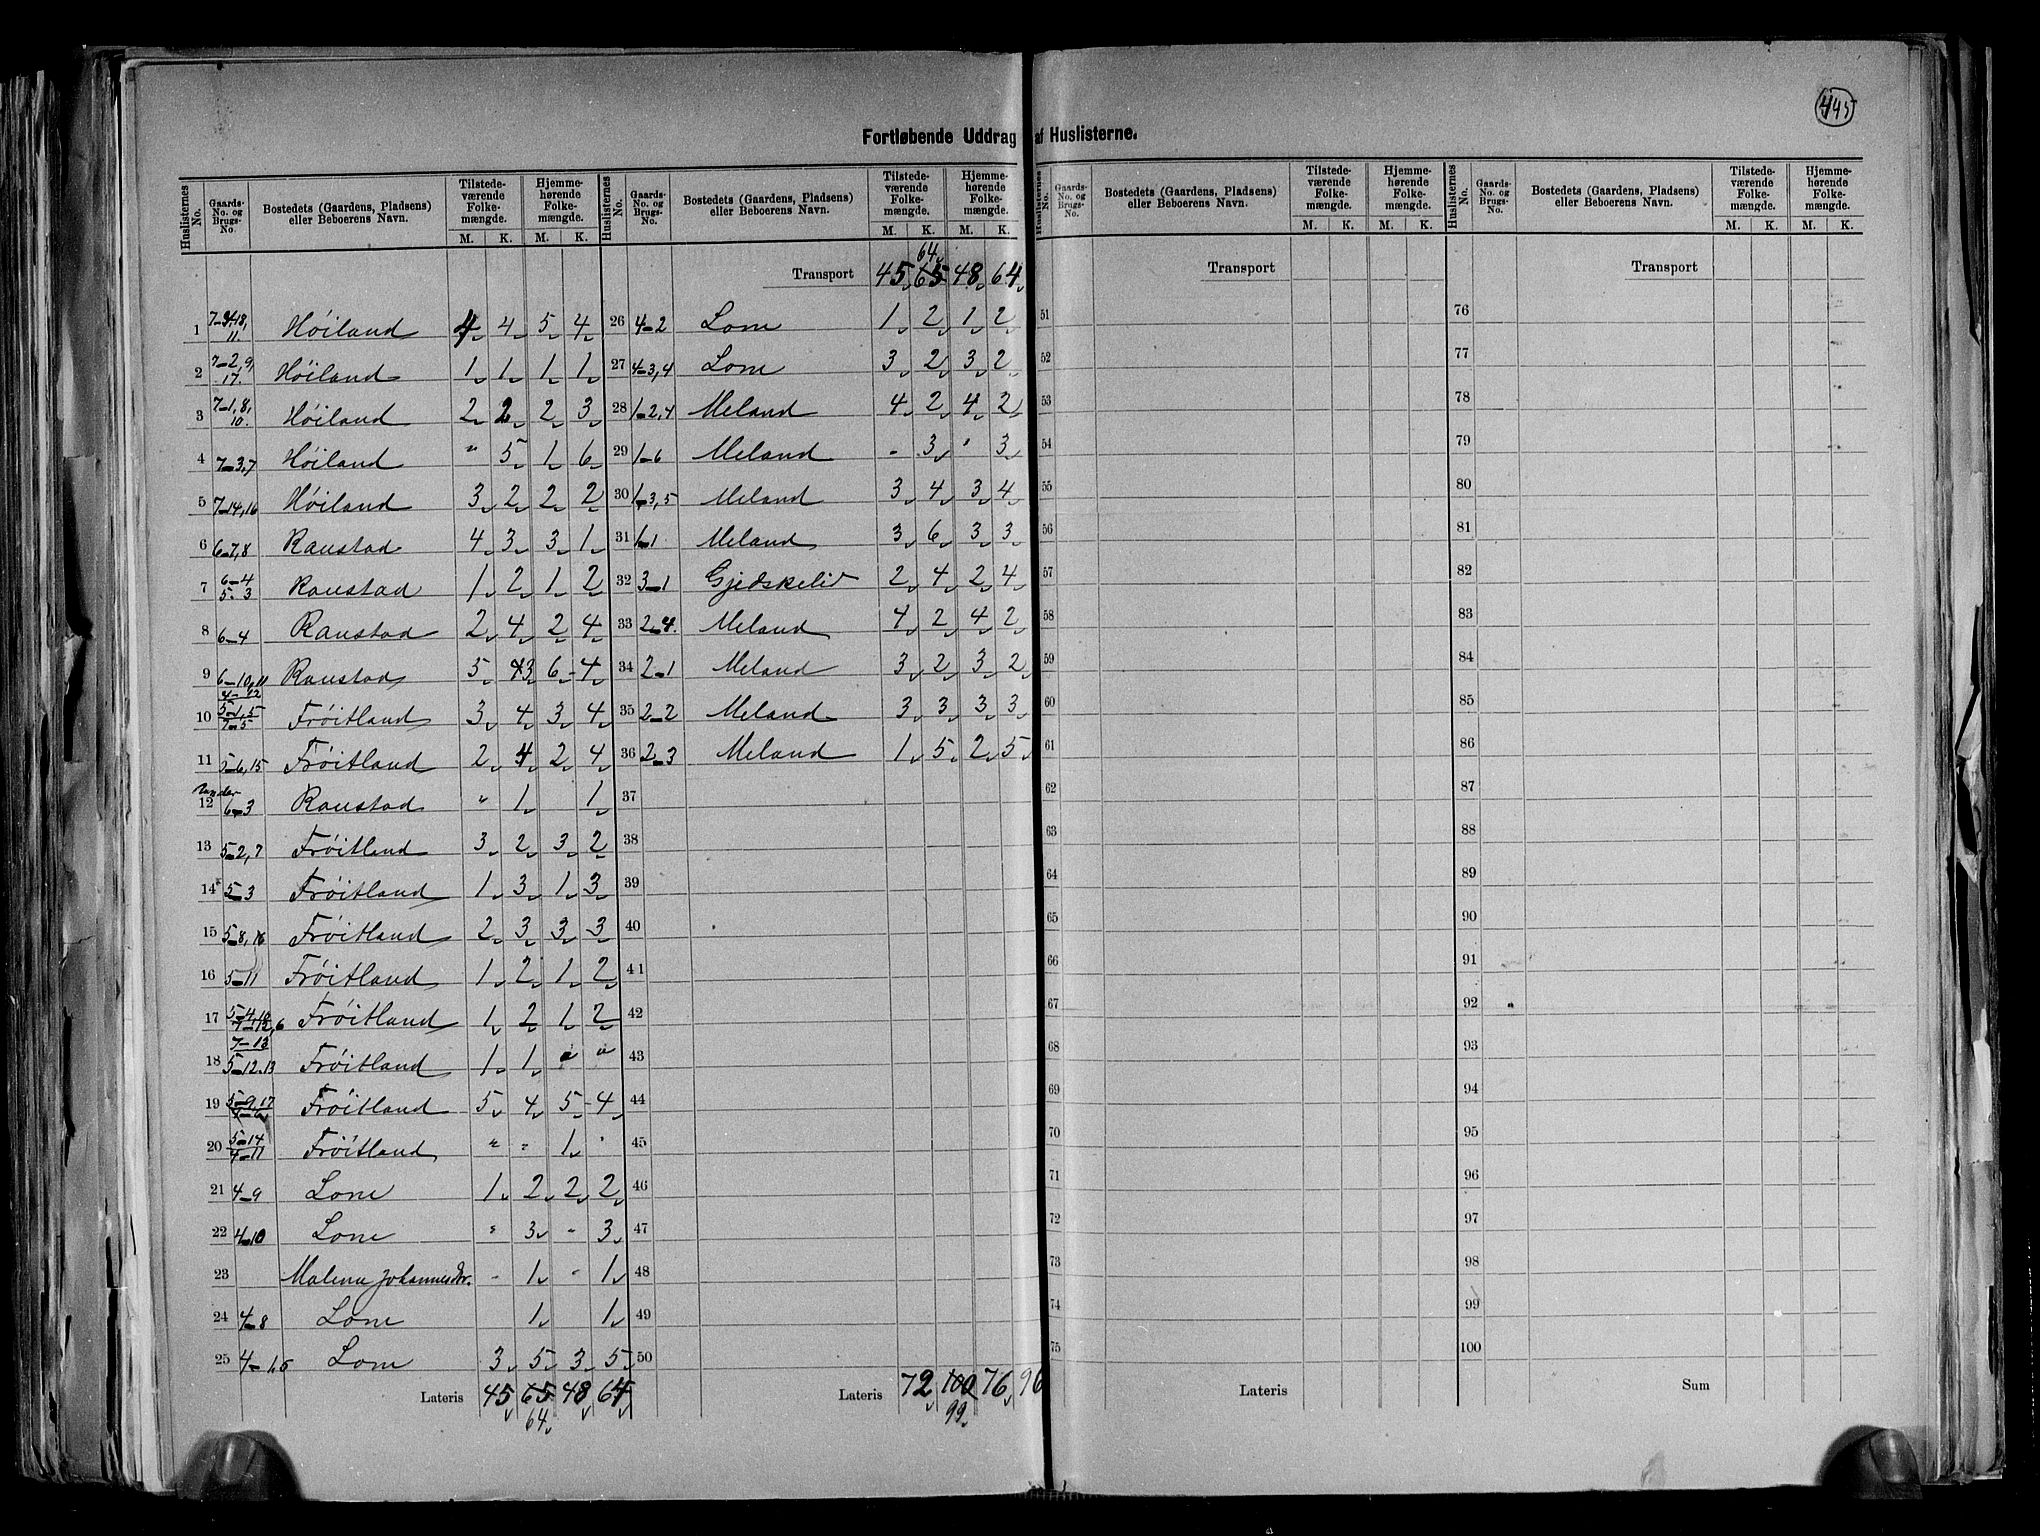 445
Fortløbende Uddrag af Huslisterne.
Huslisternes No. Gaards-No. og Brugs-No. Bostedets (Gaardens, Pladsens) eller Beboerens Navn. Tilstedeværende Folkemængde. Hjemmehørende Folkemængde. M. K. M. K.
1 Høiland 4 4 5 4
2 7-2,9, 17. Høiland 1 1 1 1
3 7-1,8, 10. Høiland 2 2 2 3
4 7-3,7 Høiland " 5 1 6
5 7-14,16 Høiland 3 2 2 2
6 6-7,8 Raustad 4 3 3 1
7 6-4 5-3 Raustad 1 2 1 2
8 6-4 Raustad 2 4 2 4
9 6-10,11 Raustad 5 3 6 4
10 Frøitland 3 4 3 4
11 5-6,15 Frøitland 2 4 2 4
12 under 6-3 Raustad " 1 1
13 5-2,7 Frøitland 3 2 3 2
14 5-3 Frøitland 1 3 1 3
15 5-8,16 Frøitland 2 3 3 3
16 5-11 Frøitland 1 2 1 2
17 Frøitland 1 2 1 2
18 7-13 5-12.13 Frøitland 1 1 " "
19 5-9,17 Frøitland 5 4 5 4
20 5-14 4-11 Frøitland " " 1 "
21 4-9 Lone 1 2 2 2
22 4-10 Lone " 3 " 3
23 Malena Johannesdr. - 1 " 1
24 4-8 Lone 1 1
25 4-1,5 Lone 3 5 3 5
Lateris 45 65 48 64
64
Huslisternes No. Gaards-No. og Brugs-No. Bostedets (Gaardens, Pladsens) eller Beboerens Navn. Tilstedeværende Folkemængde. Hjemmehørende Folkemængde. M. K. M. K.
64
Transport 45 65 48 64
26 4-2 Lone 1 2 1 2
27 4-3,4 Lone 3 2 3 2
28 1-2,4 Meland 4 2 4 2
29 1-6 Meland - 3 " 3
30 1-3,5 Meland 3 4 3 4
31 1-1 Meland 3 6 3 3
32 3-1 Gjedskelid 2 4 2 4
33 2-4. Meland 4 2 4 2
34 2-1 Meland 3 2 3 2
35 2-2 Meland 3 3 3 3
36 2-3 Meland 1 5 2 5
37
38
39
40
41
42
43
44
45
46
47
48
49
50
Lateris 72 100 76 96
99
Huslisternes No. Gaards-No. og Brugs-No. Bostedets (Gaardens, Pladsens) eller Beboerens Navn. Tilstedeværende Folkemængde. Hjemmehørende Folkemængde. M. K. M. K.
Transport
51
52
53
54
55
56
57
58
59
60
61
62
63
64
65
66
67
68
69
70
71
72
73
74
75
Lateris
Huslisternes No. Gaards-No. og Brugs-No. Bostedets (Gaardens, Pladsens) eller Beboerens Navn. Tilstedeværende Folkemængde. Hjemmehørende Folkemængde. M. K. M. K.
Transport
76
77
78
79
80
81
82
83
84
85
86
87
88
89
90
91
92
93
94
95
96
97
98
99
100
Sum